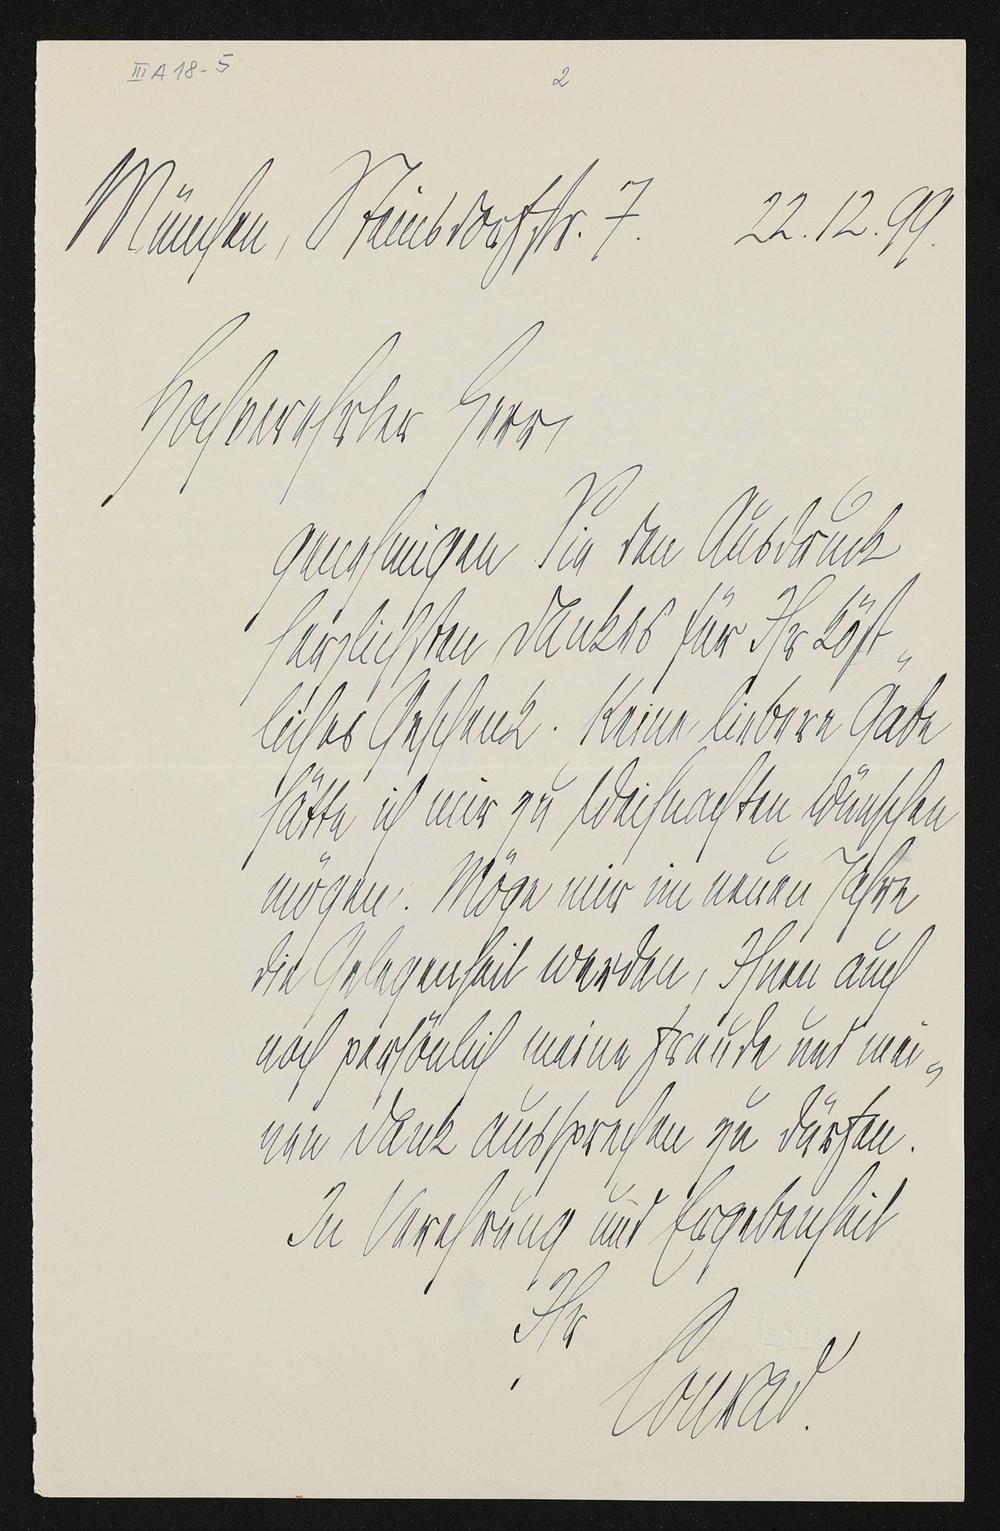 III A 18-5
2
München, Steinsdorfstr. 7. 22.12.99.
Hochverehrter Herr,
genehmigen Sie den Ausdruck
herzlichsten Dankes für Ihr köst„
liches Geschenk. Keine liebere Gabe
hätte ich mir zu Weihnachten wünschen
mögen. Möge mir im neuen Jahre
die Gelegenheit werden, Ihnen auch
noch persönlich meine Freude und mei„
nen Dank aussprechen zu dürfen.
In Verehrung und Ergebenheit
Ihr
Conrad.